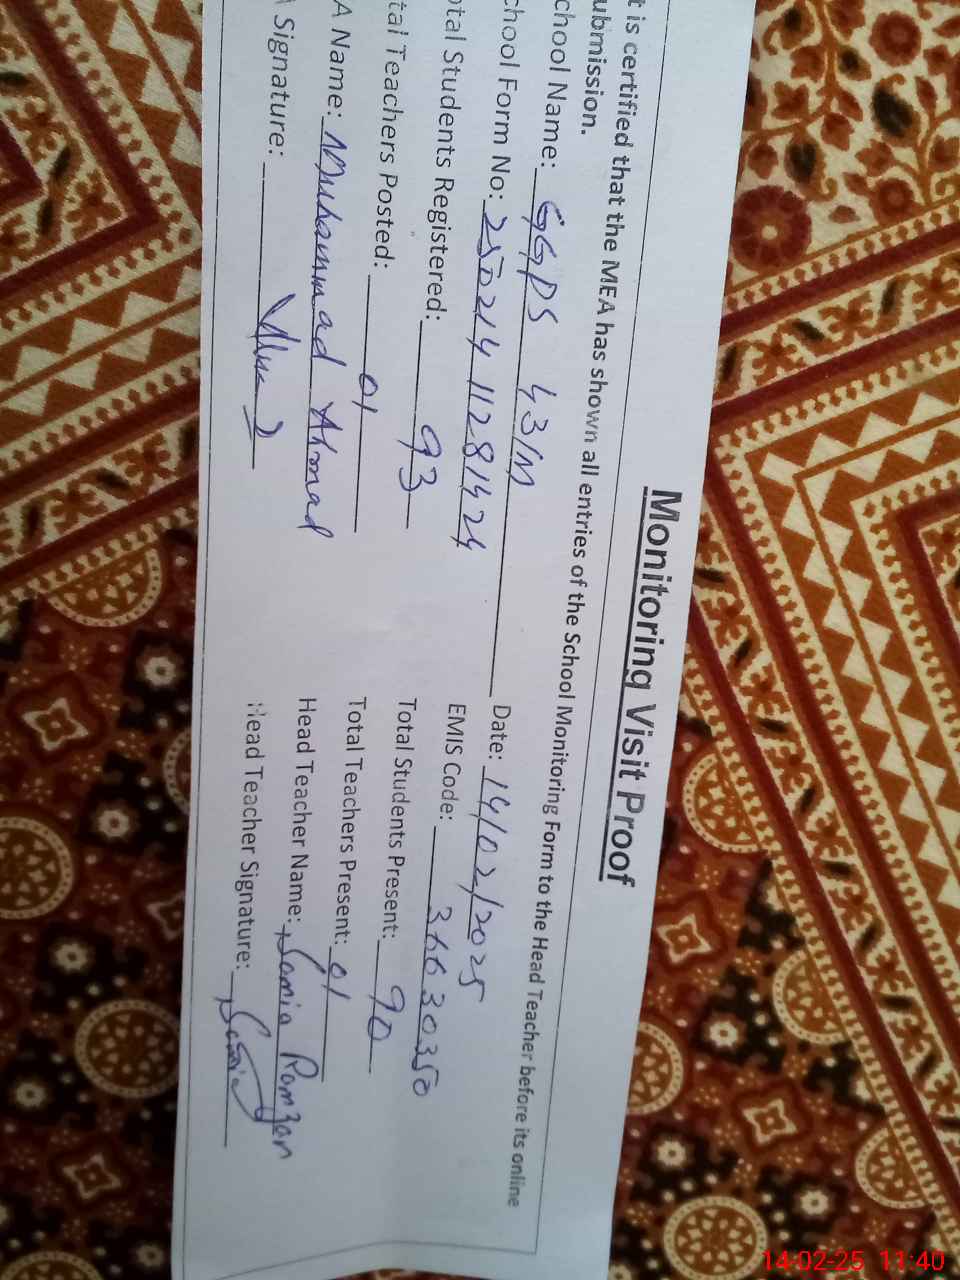 Monitoring Visit Proof
t is certified that the MEA has shown all entries of the School Monitoring Form to the Head Teacher before its online
ubmission.
chool Name: GGPS 43/M Date: 14/02/2025
chool Form No: 25021411281424 EMIS Code: 36630350
otal Students Registered: 93 Total Students Present: 90
tal Teachers Posted: 01 Total Teachers Present: 01
A Name: Muhammad Ahmad Head Teacher Name: Samia Ramzan
A Signature: Head Teacher Signature: Samia
14-02-25 11:40